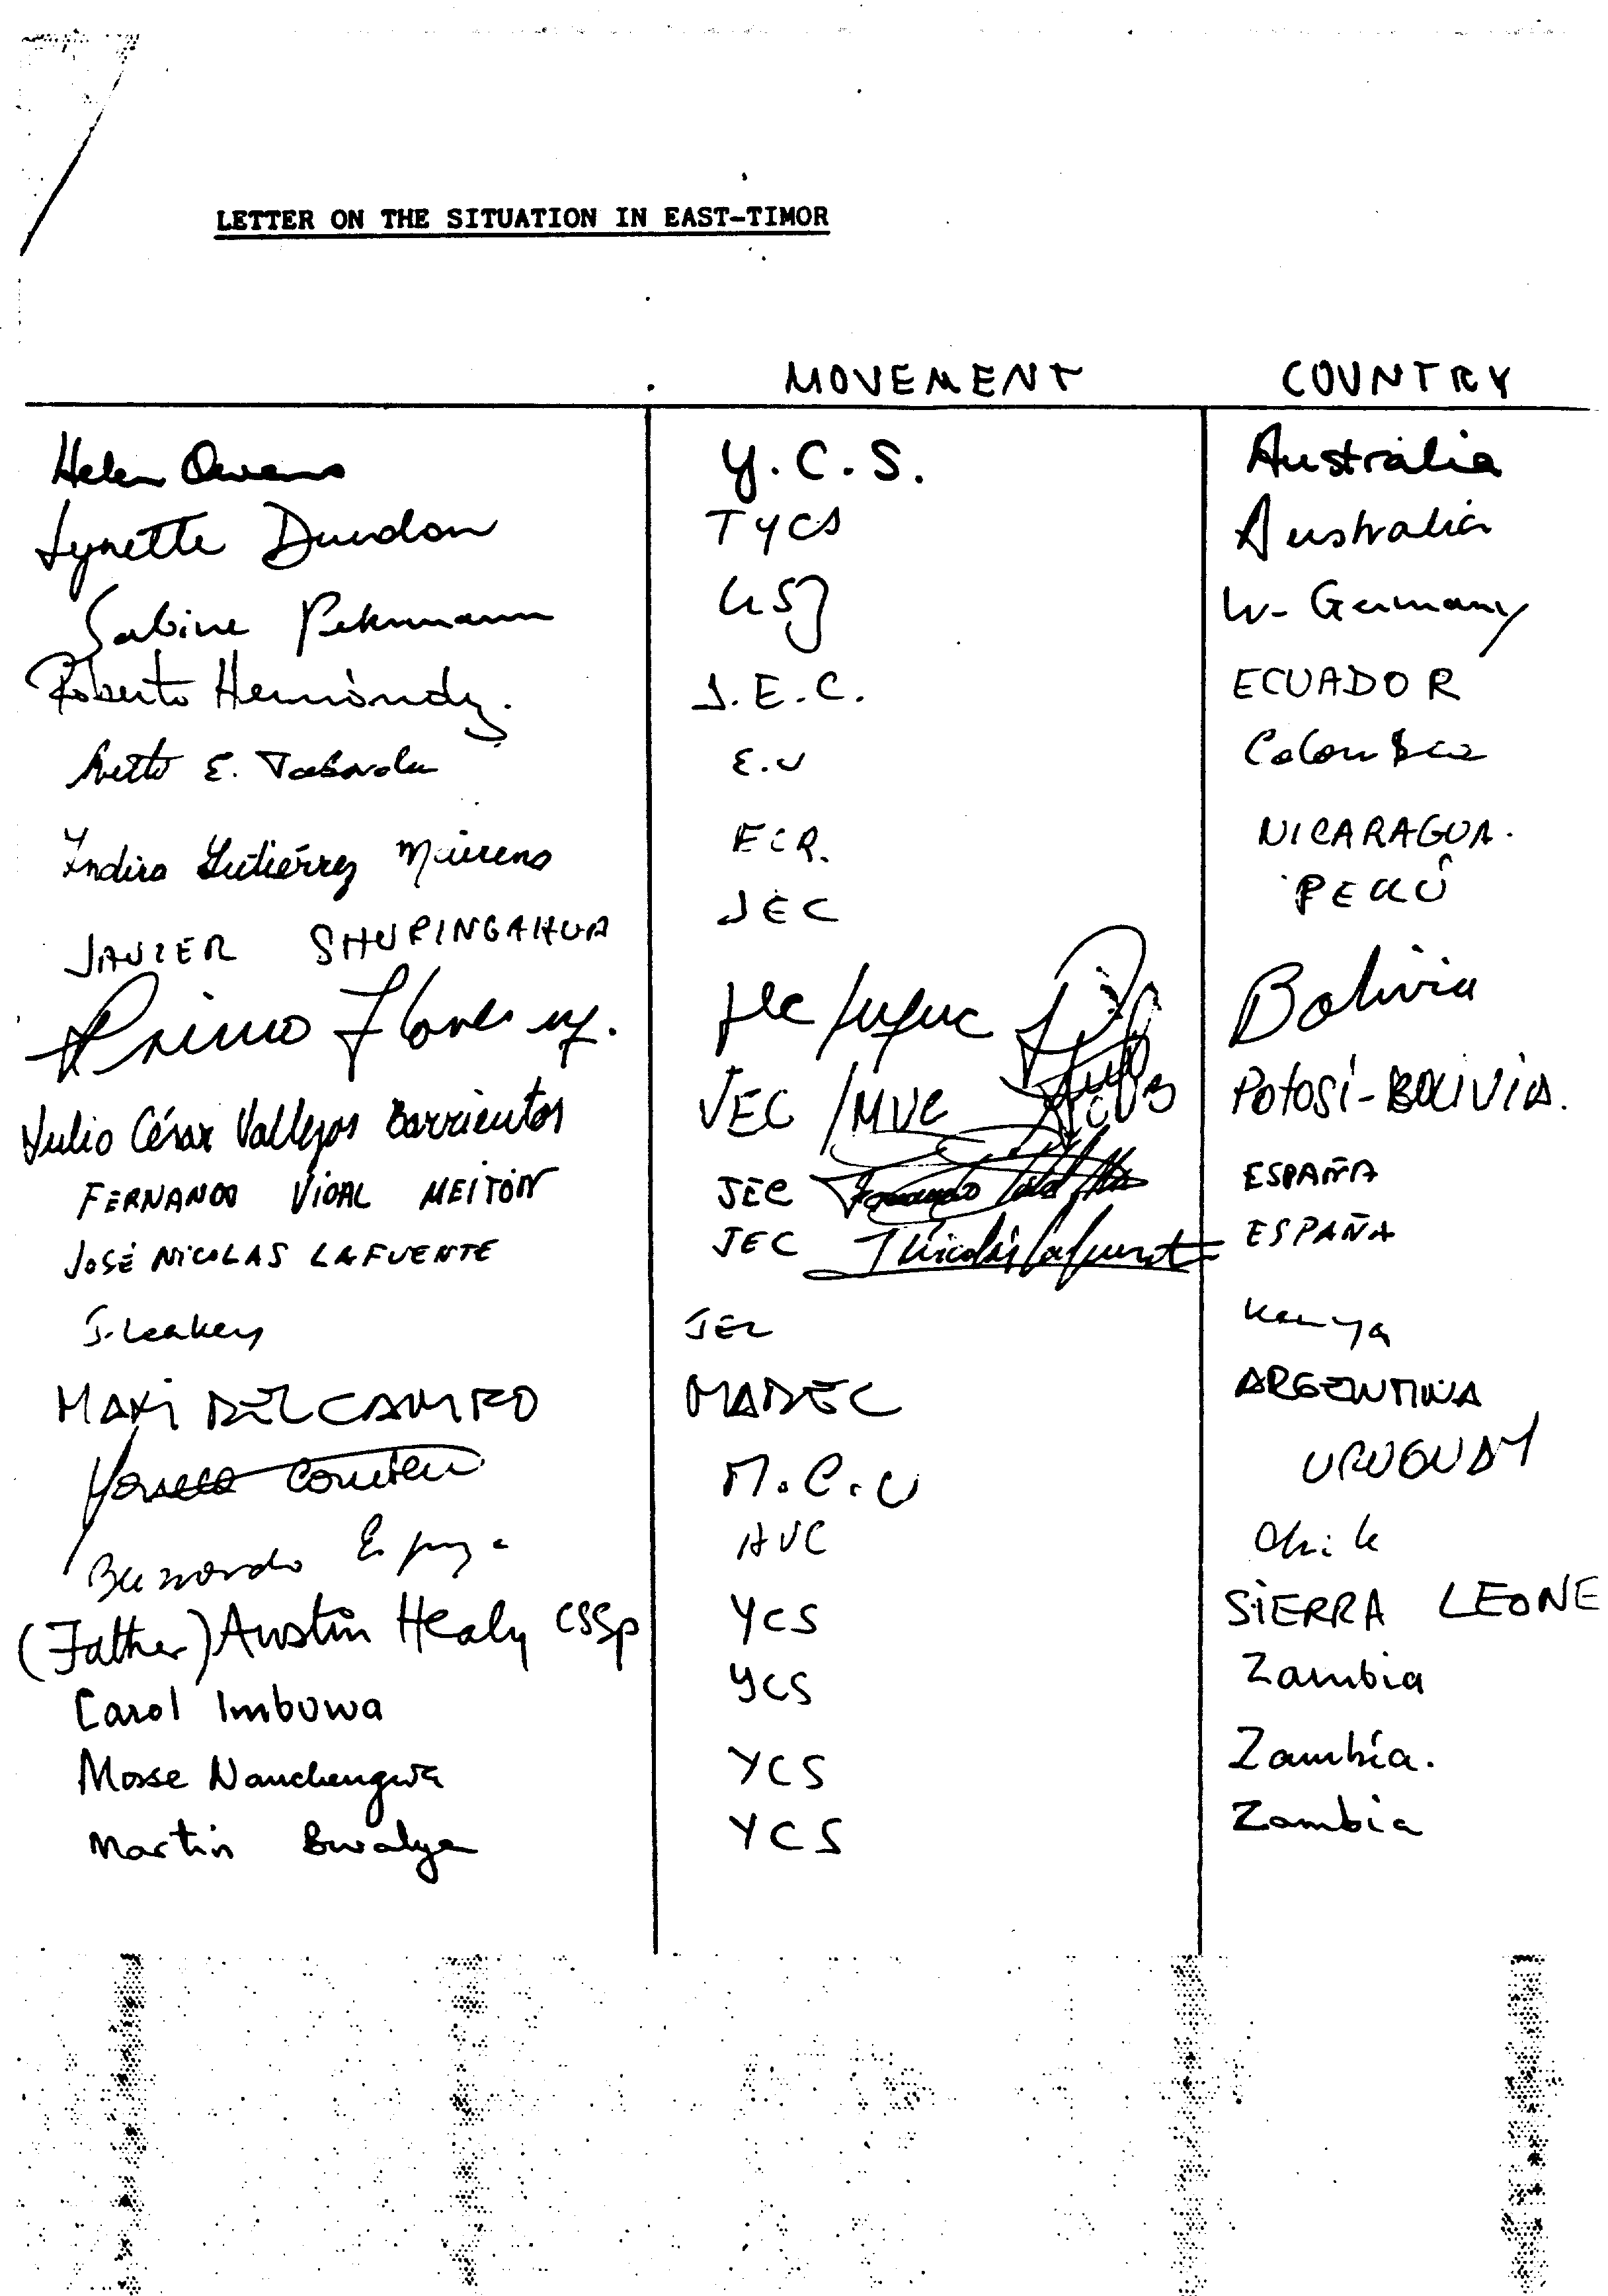 LETTER ON THE SITUATION IN EAST-TIMOR
MOVEMENT COUNTRY
Helen Owens Y.C.S. Australia
Lynette Dundon TYCS Australia
Sabine W-Germany
Roberto Hernández. J.E.C. ECUADOR
E. E.U Colombia
Indira Gutiérrez Mairena ECR. NICARAGUA.
JAVIER SHUPINGAHUA JEC PERÚ
Primo Flores Jec / Bolivia
Julio César Vallejos Barrientos JEC / MUC POTOSÍ-BOLIVIA.
FERNANDO VIDAL MEITÍN JEC ESPAÑA
JOSÉ NICOLAS LAFUENTE JEC ESPAÑA
J. Leakey Kenya
MAXI DEL CAMPO MADEC ARGENTINA
M.C.U URUGUAY
Bernardo AUC Chile
(Father) Austin Healy CSSp YCS SIERRA LEONE
Carol Imbuwa YCS Zambia
Mosse YCS Zambia.
Martin Bwalya YCS Zambia